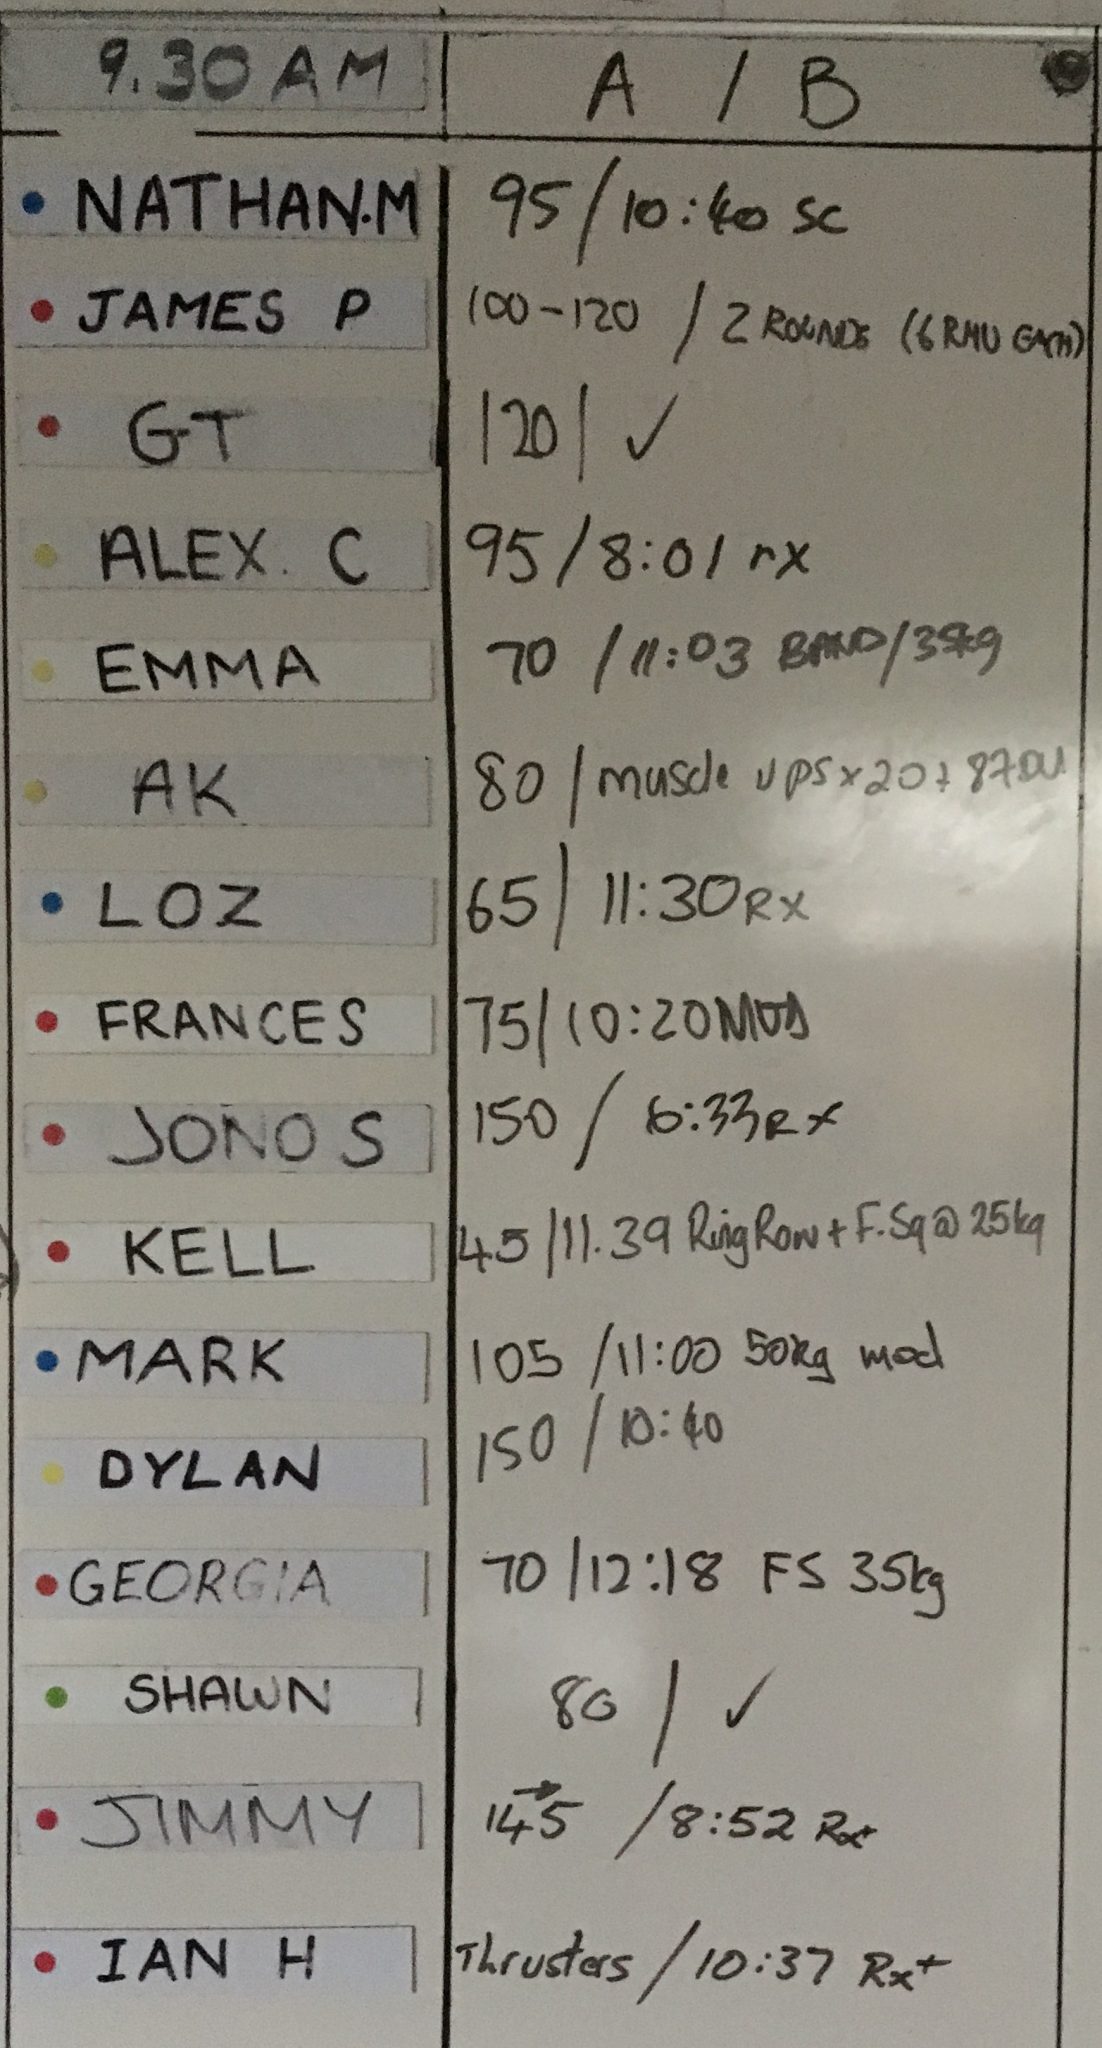 9.30 AM A / B
NATHAN.M 95/10:40 SC
JAMES P 100-120 / 2 ROUNDS (6 RMU EACH)
GT 120/ ✓
ALEX. C 95/8:01 rx
EMMA 70 /11:03 BAND/35kg
AK 80 / muscle ups x 20 + 87DU
LOZ 65/ 11:30 Rx
FRANCES 75/10:20 MOD
JONO S 150 / 6:33 Rx
KELL 45/11.39 Ring Row + F.Sq @ 25kg
MARK 105 /11:00 50kg mod
DYLAN 150 / 10:40
GEORGIA 70 /12:18 FS 35kg
SHAWN 80 / ✓
JIMMY 145 → /8:52 Rx+
IAN H Thrusters /10:37 Rx+